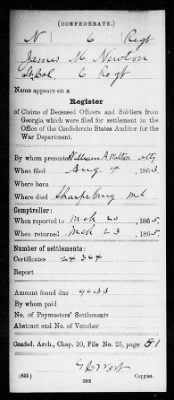 (CONFEDERATE.)
N 6 Regt
James M. Newton
Lt. Col. 6 Regt
Name appears on a
Register
of Claims of Deceased Officers and Soldiers from
Georgia which were filed for settlement in the
Office of the Confederate States Auditor for the
War Department.
By whom presented William A Walton atty
When filed Aug 4, 1863.
Where born
Where died Sharpsburg Md
Comptroller:
When reported to Mch 20, 1865.
When returned Mch 23, 1865.
Number of settlements:
Certificates 24324
Report
Amount found due 96.33
By whom paid
No. of Paymasters' Settlements
Abstract and No. of Voucher
Confed. Arch., Chap. 10, File No. 25, page 51
(635)
Copyist.